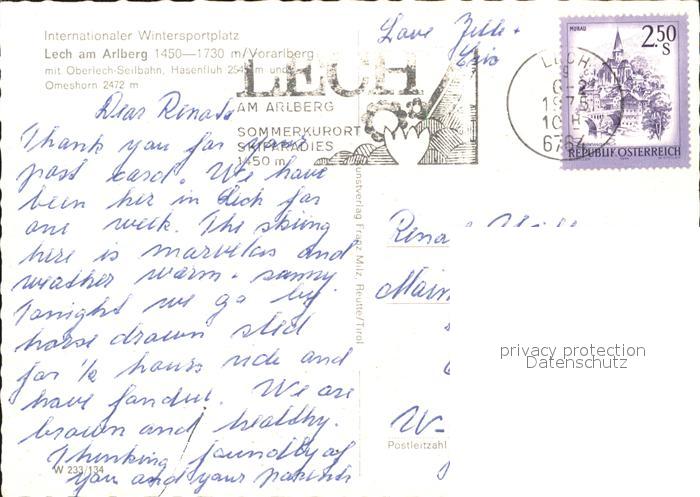 Internationaler Wintersportplatz
Lech am Arlberg 1450—1730 m/Vorarlberg
mit Oberlech-Seilbahn, Hasenfluh 254 m und
Omeshorn 2472 m
LECH
AM ARLBERG
SOMMERKURORT
SKIPARADIES
1450 m
LECH
1975
10 H
6764
MURAU
2.50
S
REPUBLIK ÖSTERREICH
Love
Dear Renate
Thank you for your
post card. We have
been her in Lech for
one week. The skiing
here is marvelas and
weather warm + sunny.
Tonight we go by
horse drawn sled
for 1/2 hours ride and
have fondue. We are
brown and healthy.
Thinking foundly of
you and your parents
W 233/134
Kunstverlag Franz Milz, Reutte/Tirol
Rena
Main
W-
Postleitzahl
privacy protection
Datenschutz